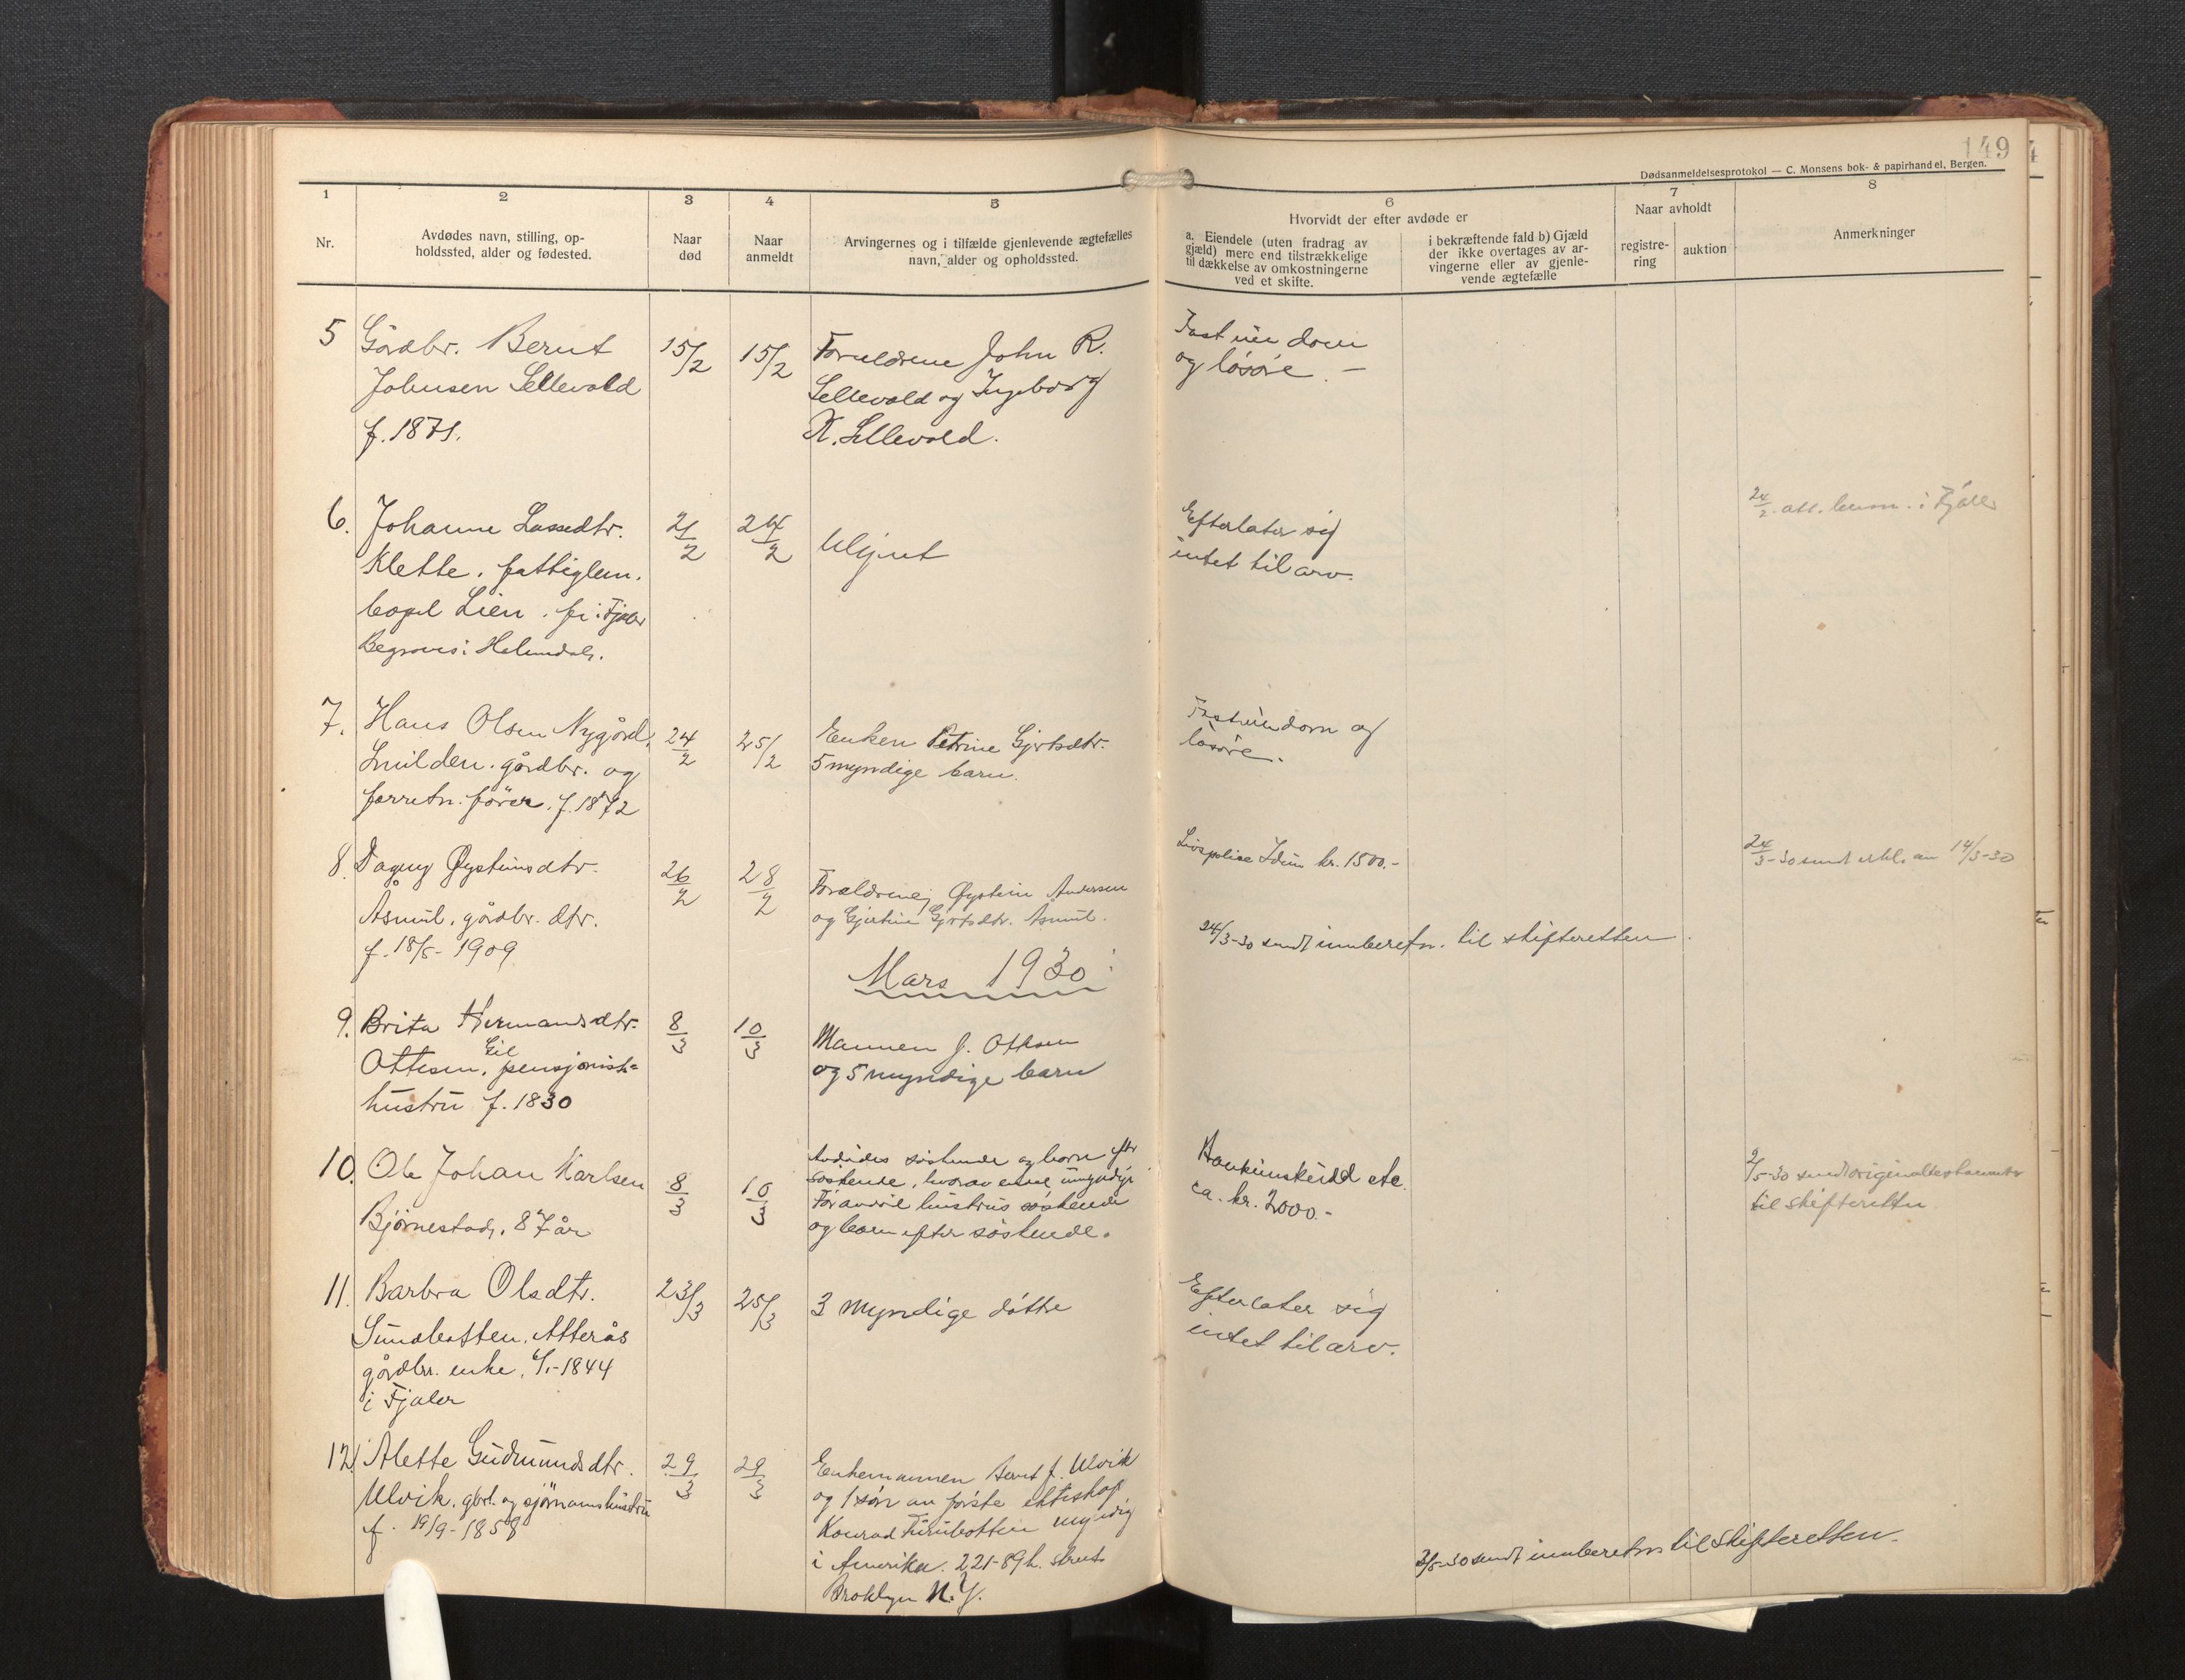 149
Dødsanmeldelsesprotokol — C. Monsens bok- & papirhandel, Bergen.
1
2
3
4
5
6
7
8
Nr.
Avdødes navn, stilling, op-
holdssted, alder og fødested.
Naar
død
Naar
anmeldt
Arvingernes og i tilfælde gjenlevende ægtefælles
navn, alder og opholdssted.
Hvorvidt der efter avdøde er
a. Eiendele (uten fradrag av
gjæld) mere end tilstrækkelige
til dækkelse av omkostningerne
ved et skifte.
i bekræftende fald b) Gjæld
der ikke overtages av ar-
vingerne eller av gjenle-
vende ægtefælle
Naar avholdt
registre-
ring
auktion
Anmerkninger
5
Gårdbr. Bernt
Johnsen Sellevold
f. 1871.
15/2
15/2
Foreldrene John R.
Sellevold og Ingeborg
K. Sellevold.
Fast eiendom
og løsøre. –
6.
Johanne Lassedtr.
Klette. fattiglem.
bopel Lien. f. i Fjaler
Begraves i Holmedal.
21/2
24/2
Ukjent
Efterlater sig
intet til arv.
24/2 att. lensm. i Fjaler
7.
Hans Olsen Nygård,
Smilden. gårdbr. og
forretn. fører. f. 1872
24/2
25/2
Enken Petrine Gjertsdtr.
5 myndige barn.
Fast eiendom og
løsøre.
8.
Dagny Øysteinsdtr.
Åsnul. gårdbr. dtr.
f. 18/5 - 1909
26/2
28/2
Foreldrene, Øystein Andersen
og Gjertine Gjertsdtr. Åsnul.
Livspolise Idun kr. 1500.-
24/3-30 sendt innberetn. til skifteretten.
24/3-30 sendt erkl. av 14/3-30
Mars 1930:
9.
Brita Hermansdtr.
Gil
Ottesen, pensjonist=
hustru f. 1830
8/3
10/3
Mannen J. Ottesen
og 5 myndige barn
10.
Ole Johan Karlsen
Bjørnestad, 87 år
8/3
10/3
Avdødes søskende og barn efter
søskende, hvorav endel umyndige
Foravdød hustrus søskende
og barn efter søskende.
Bankinnskudd etc.
ca. kr. 2000.-
2/5-30 sendt originaltestamente
til skifteretten
11.
Barbra Olsdtr.
Sundbotten. Atterås
gårdbr. enke, 6/1-1844
i Fjaler
23/3
25/3
3 myndige døtre
Efterlater sig
intet til arv.
12.
Alette Gudmundsdtr.
Ulvik. gbr. og sjømannshustru
f. 19/9-1858
29/3
29/3
Enkemannen Bernt J. Ulvik
og 1 sønn av første ekteskap
Konrad myndig
i Amerika. 221-89th. street
Broklyn N.Y.
2/5-30 sendt innberetn. til skifteretten.